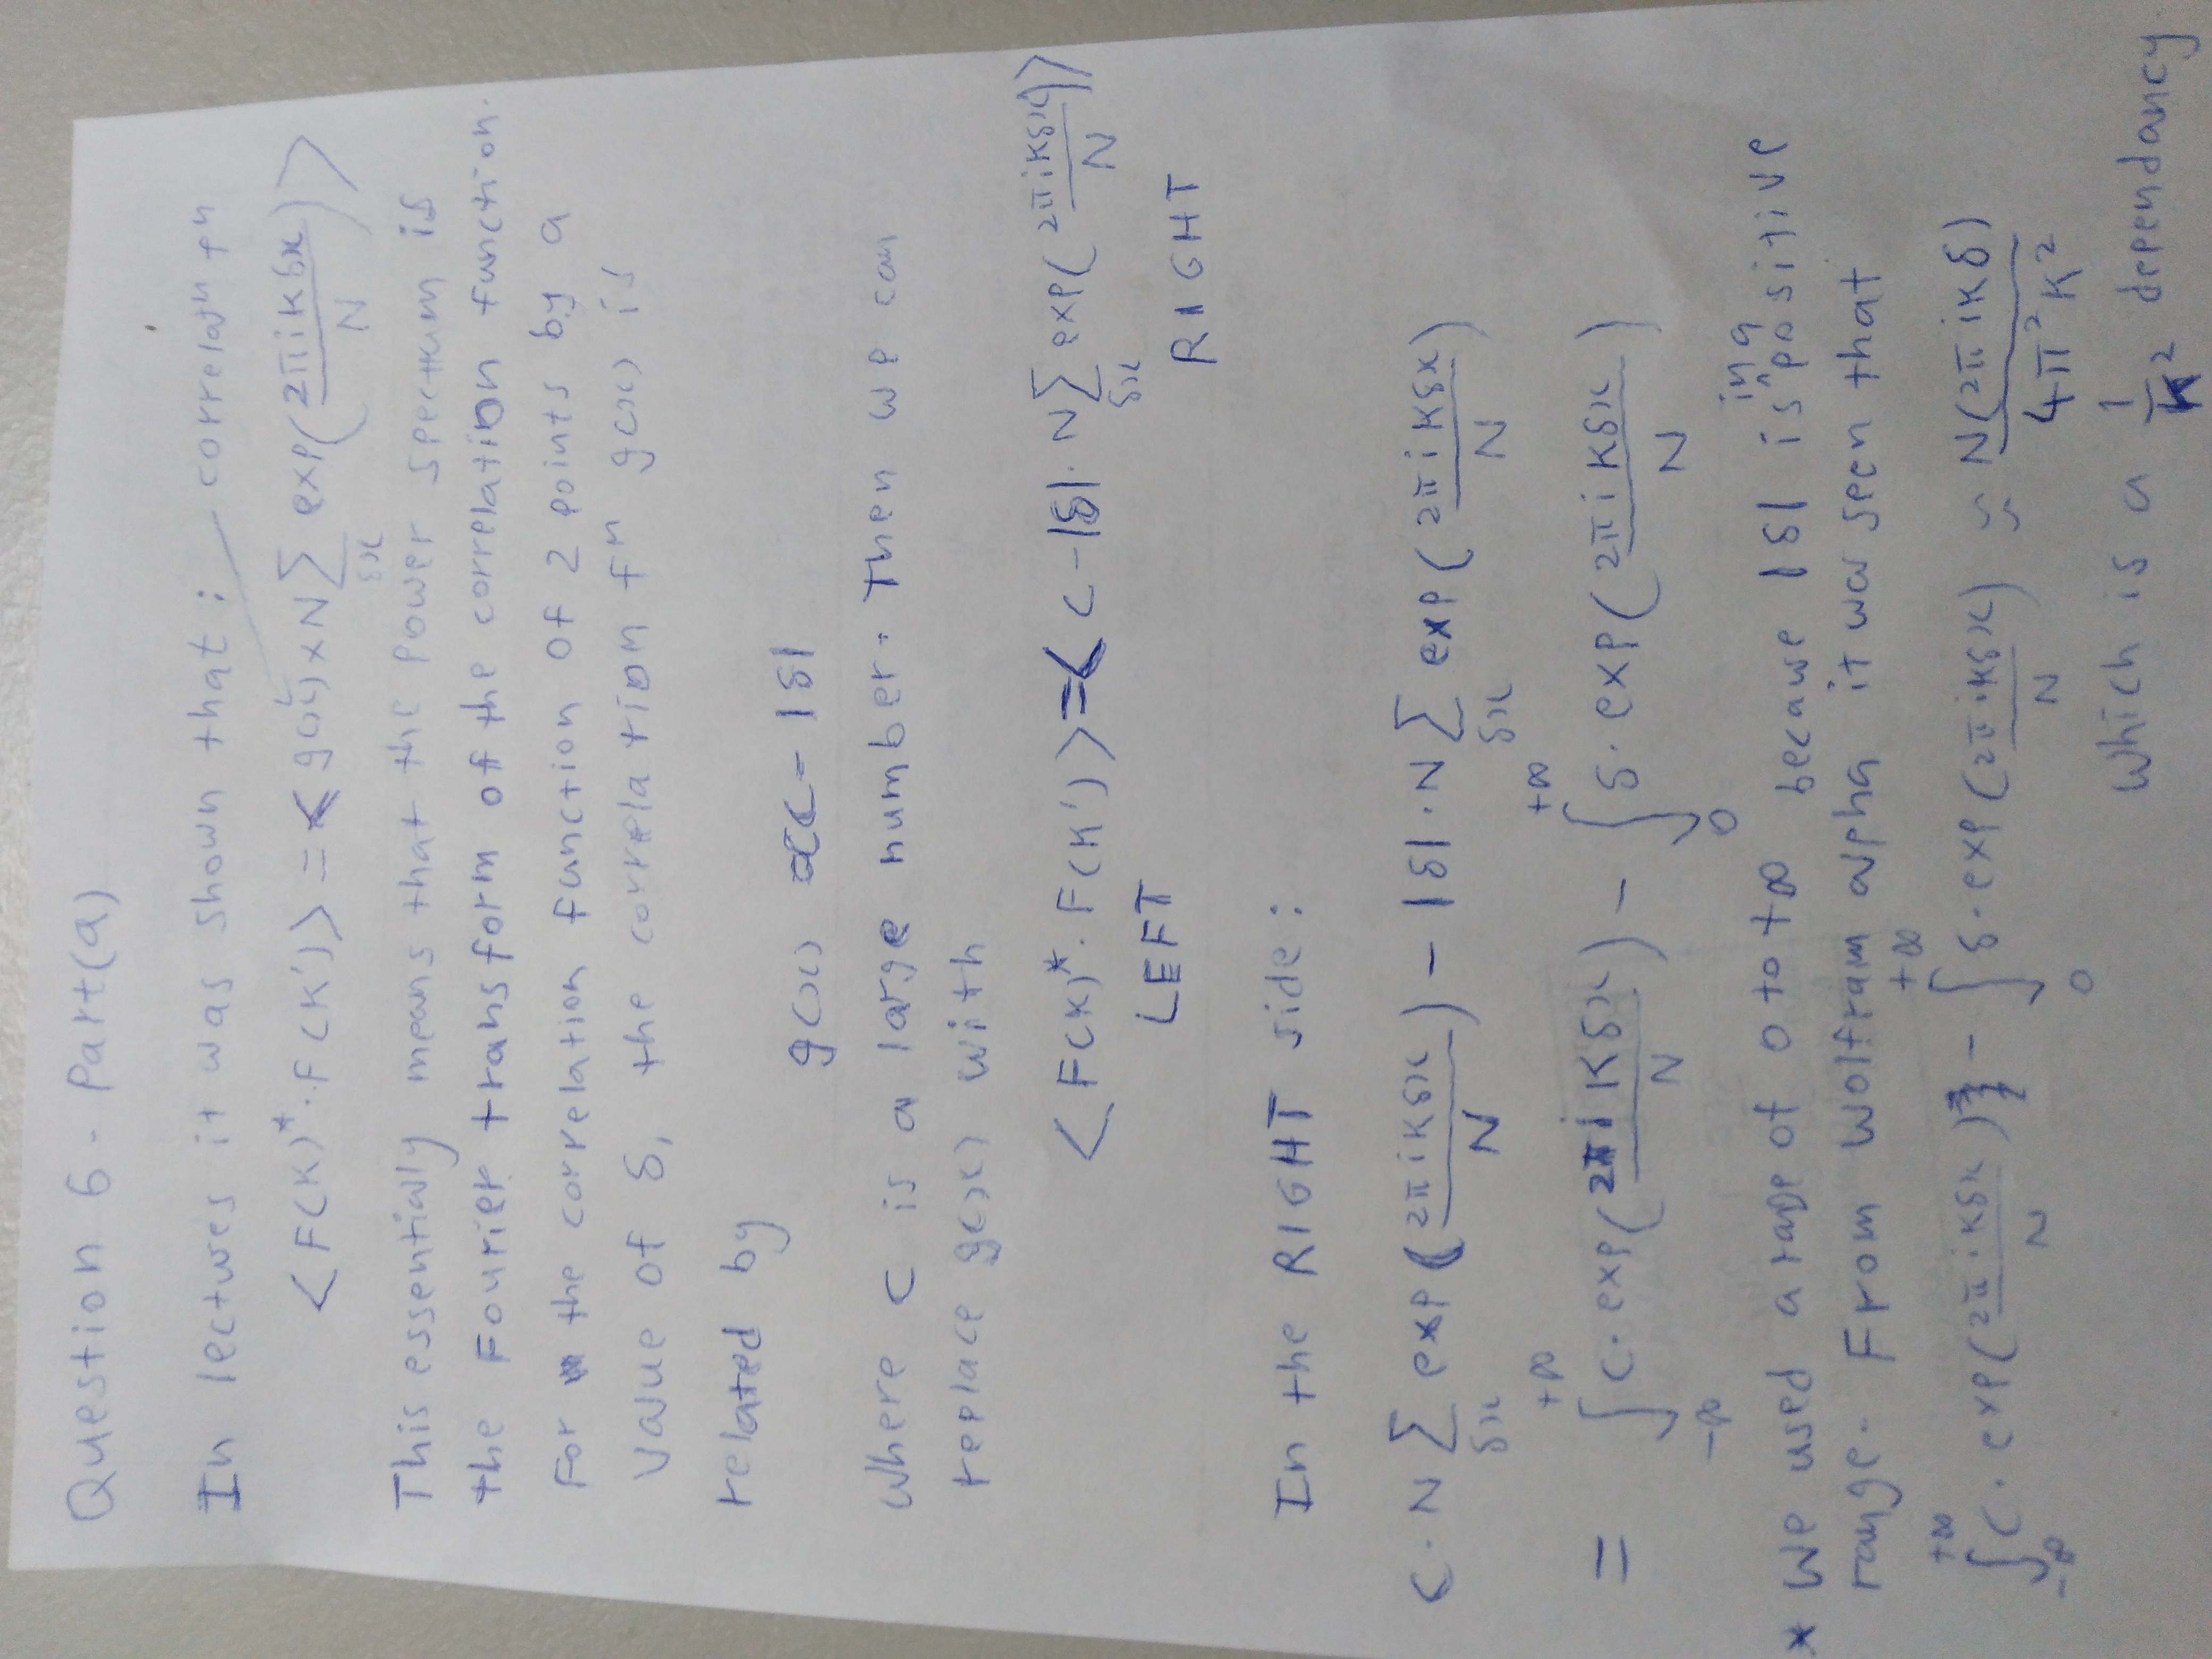 Question 6 - Part(a)
In lectures it was shown that : correlatⁿ fⁿ
<F(K)*.F(K')> = <g(x) x N∑ exp(2πikδx/N)>
δx
This essentially means that the power spectrum is
the Fourier transform of the correlation function.
For the correlation function of 2 points by a
value of δ, the correlation fⁿ g(x) is
related by
g(x) ∝ c - |δ|
Where c is a large number. Then we can
replace g(x) with
<F(K)*.F(K')> = <c-|δ|. N∑ exp(2πikδx/N)>
δx
LEFT
RIGHT
In the RIGHT side :
c.N∑ exp(2πikδx/N) - |δ|.N∑ exp(2πikδx/N)
δx δx
= ∫₋∞⁺∞ c.exp(2πikδx/N) - ∫₀⁺∞ δ.exp(2πikδx/N)
* We used a range of 0 to +∞ because |δ| is in a positive
range. From Wolfram alpha it was seen that
∫₋∞⁺∞ c.exp(2πikδx/N) - ∫₀⁺∞ δ.exp(2πikδx/N) ≈ N(2πikδ)/4π²K²
Which is a 1/K² dependancy